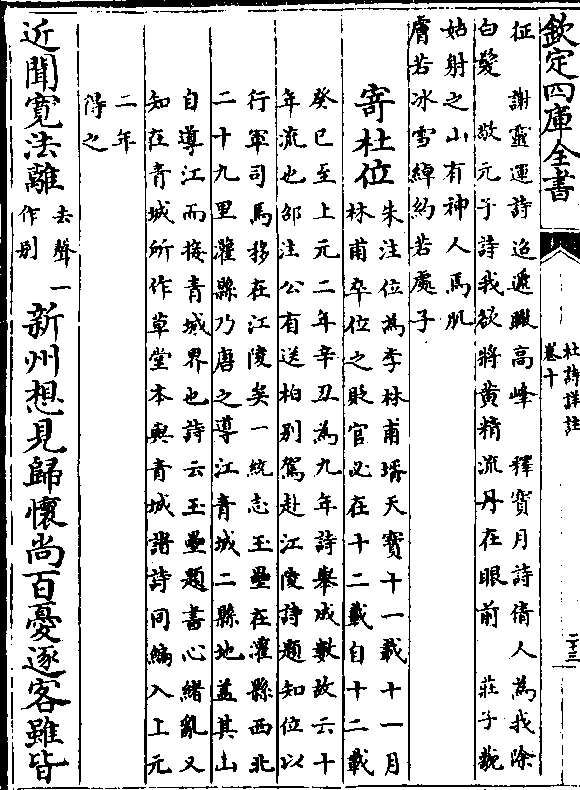 欽定四庫全書
杜詩詳註
卷十
二十三
征 謝靈運詩迢遞瞰高峰 釋寶月詩倩人為我除
白髮 敬元子詩我欲將黃精流丹在眼前 莊子藐
姑射之山有神人焉肌
膚若冰雪綽約若處子
寄杜位
朱注位為李林甫壻天寶十一載十一月
林甫卒位之貶官必在十二載自十二載
癸巳至上元二年辛丑為九年詩舉成數故云十
年流也邵注公有送柏别駕赴江陵詩題知位以
行軍司馬移在江陵矣一統志玉壘在灌縣西北
二十九里灌縣乃唐之導江青城二縣地蓋其山
自導江而接青城界也詩云玉壘題書心緒亂又
知在青城所作草堂本與青城諸詩同編入上元
二年
得之
近聞寛法離
去聲一
作别
新州想見歸懷尚百憂逐客雖皆